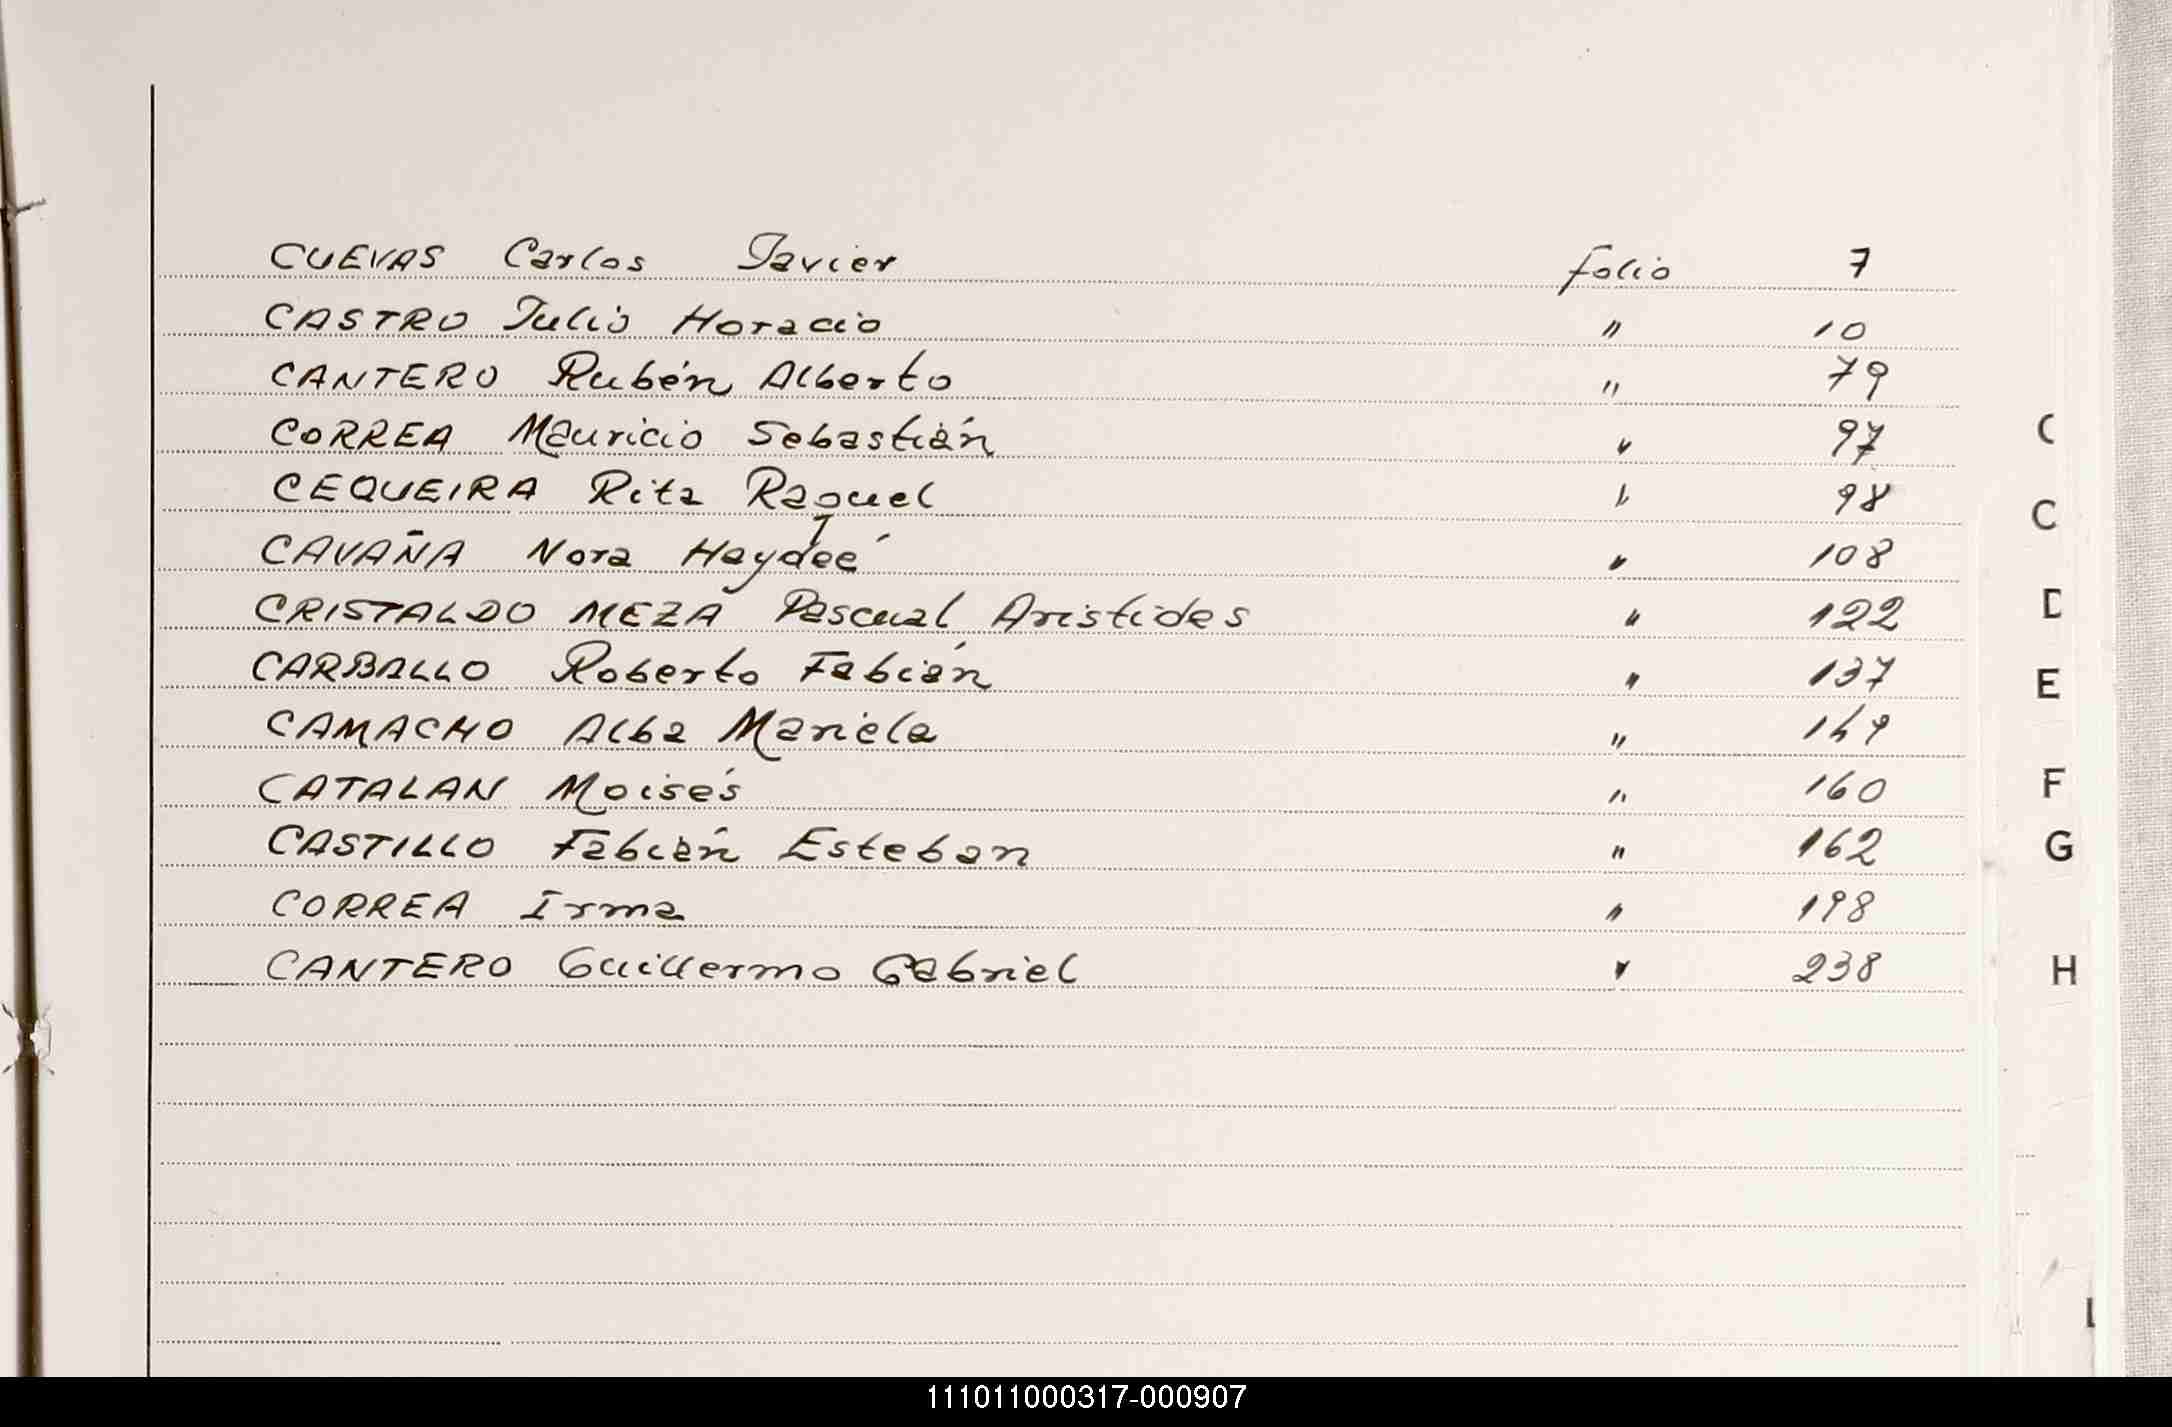 CUEVAS Carlos Javier folio 7
CASTRO Julio Horacio " 10
CANTERO Rubén Alberto " 79
CORREA Mauricio Sebastián " 97
CEQUEIRA Rita Raquel " 98
CAVAÑA Nora Haydeé " 108
CRISTALDO MEZA Pascual Aristides " 122
CARBALLO Roberto Fabián " 137
CAMACHO Alba Mariela " 149
CATALAN Moisés " 160
CASTILLO Fabián Esteban " 162
CORREA Irma " 198
CANTERO Guillermo Gabriel " 238
C
C
D
E
F
G
H
111011000317-000907